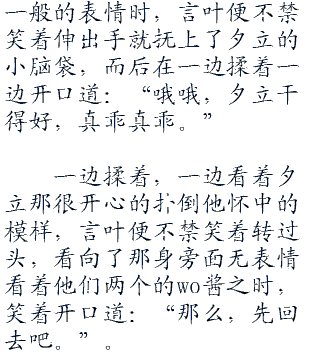 一般的表情时，言叶便不禁
笑着伸出手就抚上了夕立的
小脑袋，而后在一边揉着一
边开口道：“哦哦，夕立干
得好，真乖真乖。”
一边揉着，一边看着夕
立那很开心的扑倒他怀中的
模样，言叶便不禁笑着转过
头，看向了那身旁面无表情
看着他们两个的wo酱之时，
笑着开口道：“那么，先回
去吧。”。